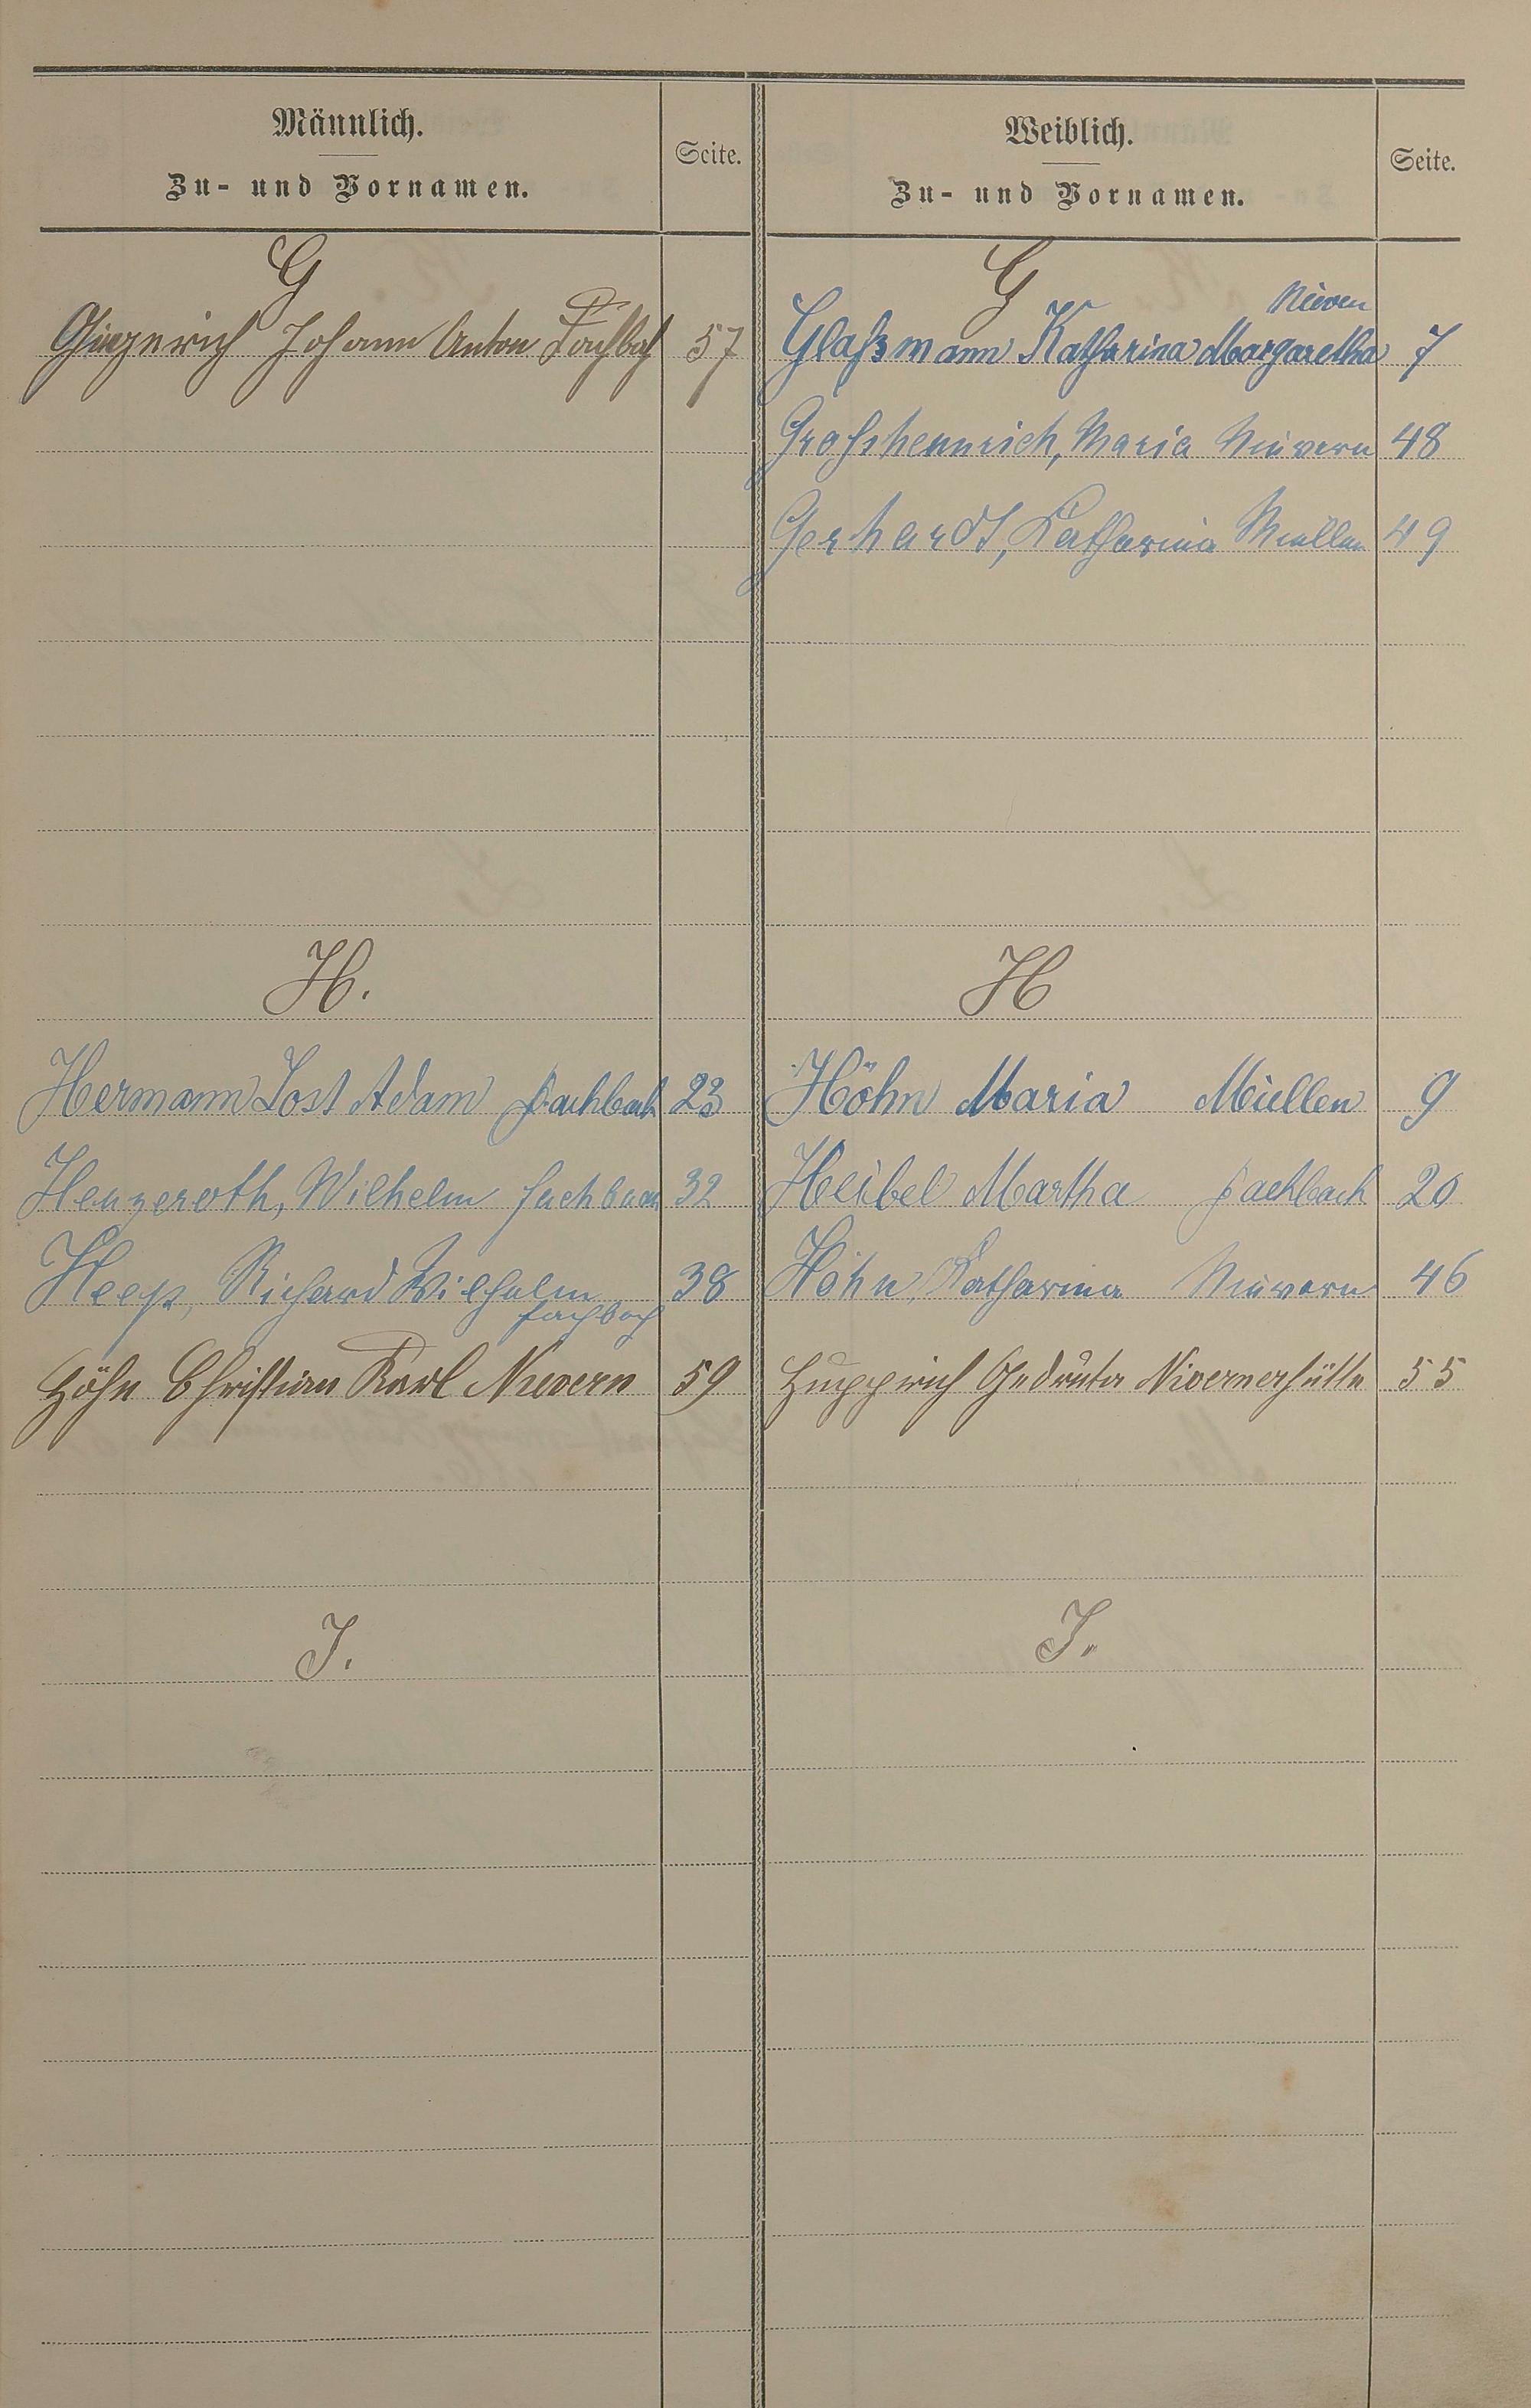 Männlich.
Zu- und Vornamen.
Seite.
G
Johann Anton Fachbach 57
H.
Hermann Jost Adam Fachbach 23
Henzeroth, Wilhelm Fachbach 32
Heep, Richard Wilhelm 38
Fachbach
Höhn Christian Karl Nievern 59
J.
Weiblich.
Zu- und Vornamen.
Seite.
G
Nievern
Glaßmann Katharina Margaretha 7
Großhennrich, Maria Nievern 48
Gerhardt, Katharina Miellen 49
H
Höhn Maria Miellen 9
Heibel Martha Fachbach 20
Höhn, Katharina Nievern 46
Hupperich Nievernerhütte 55
J.